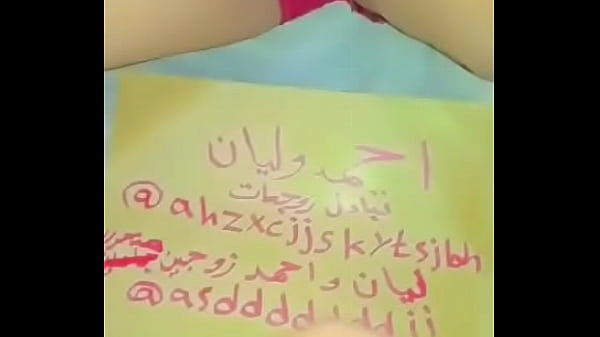 احمد وليان
تبادل زوجات
@ahzxcjjskytsjbh
ليان و احمد زوجين
@asddddddddjj